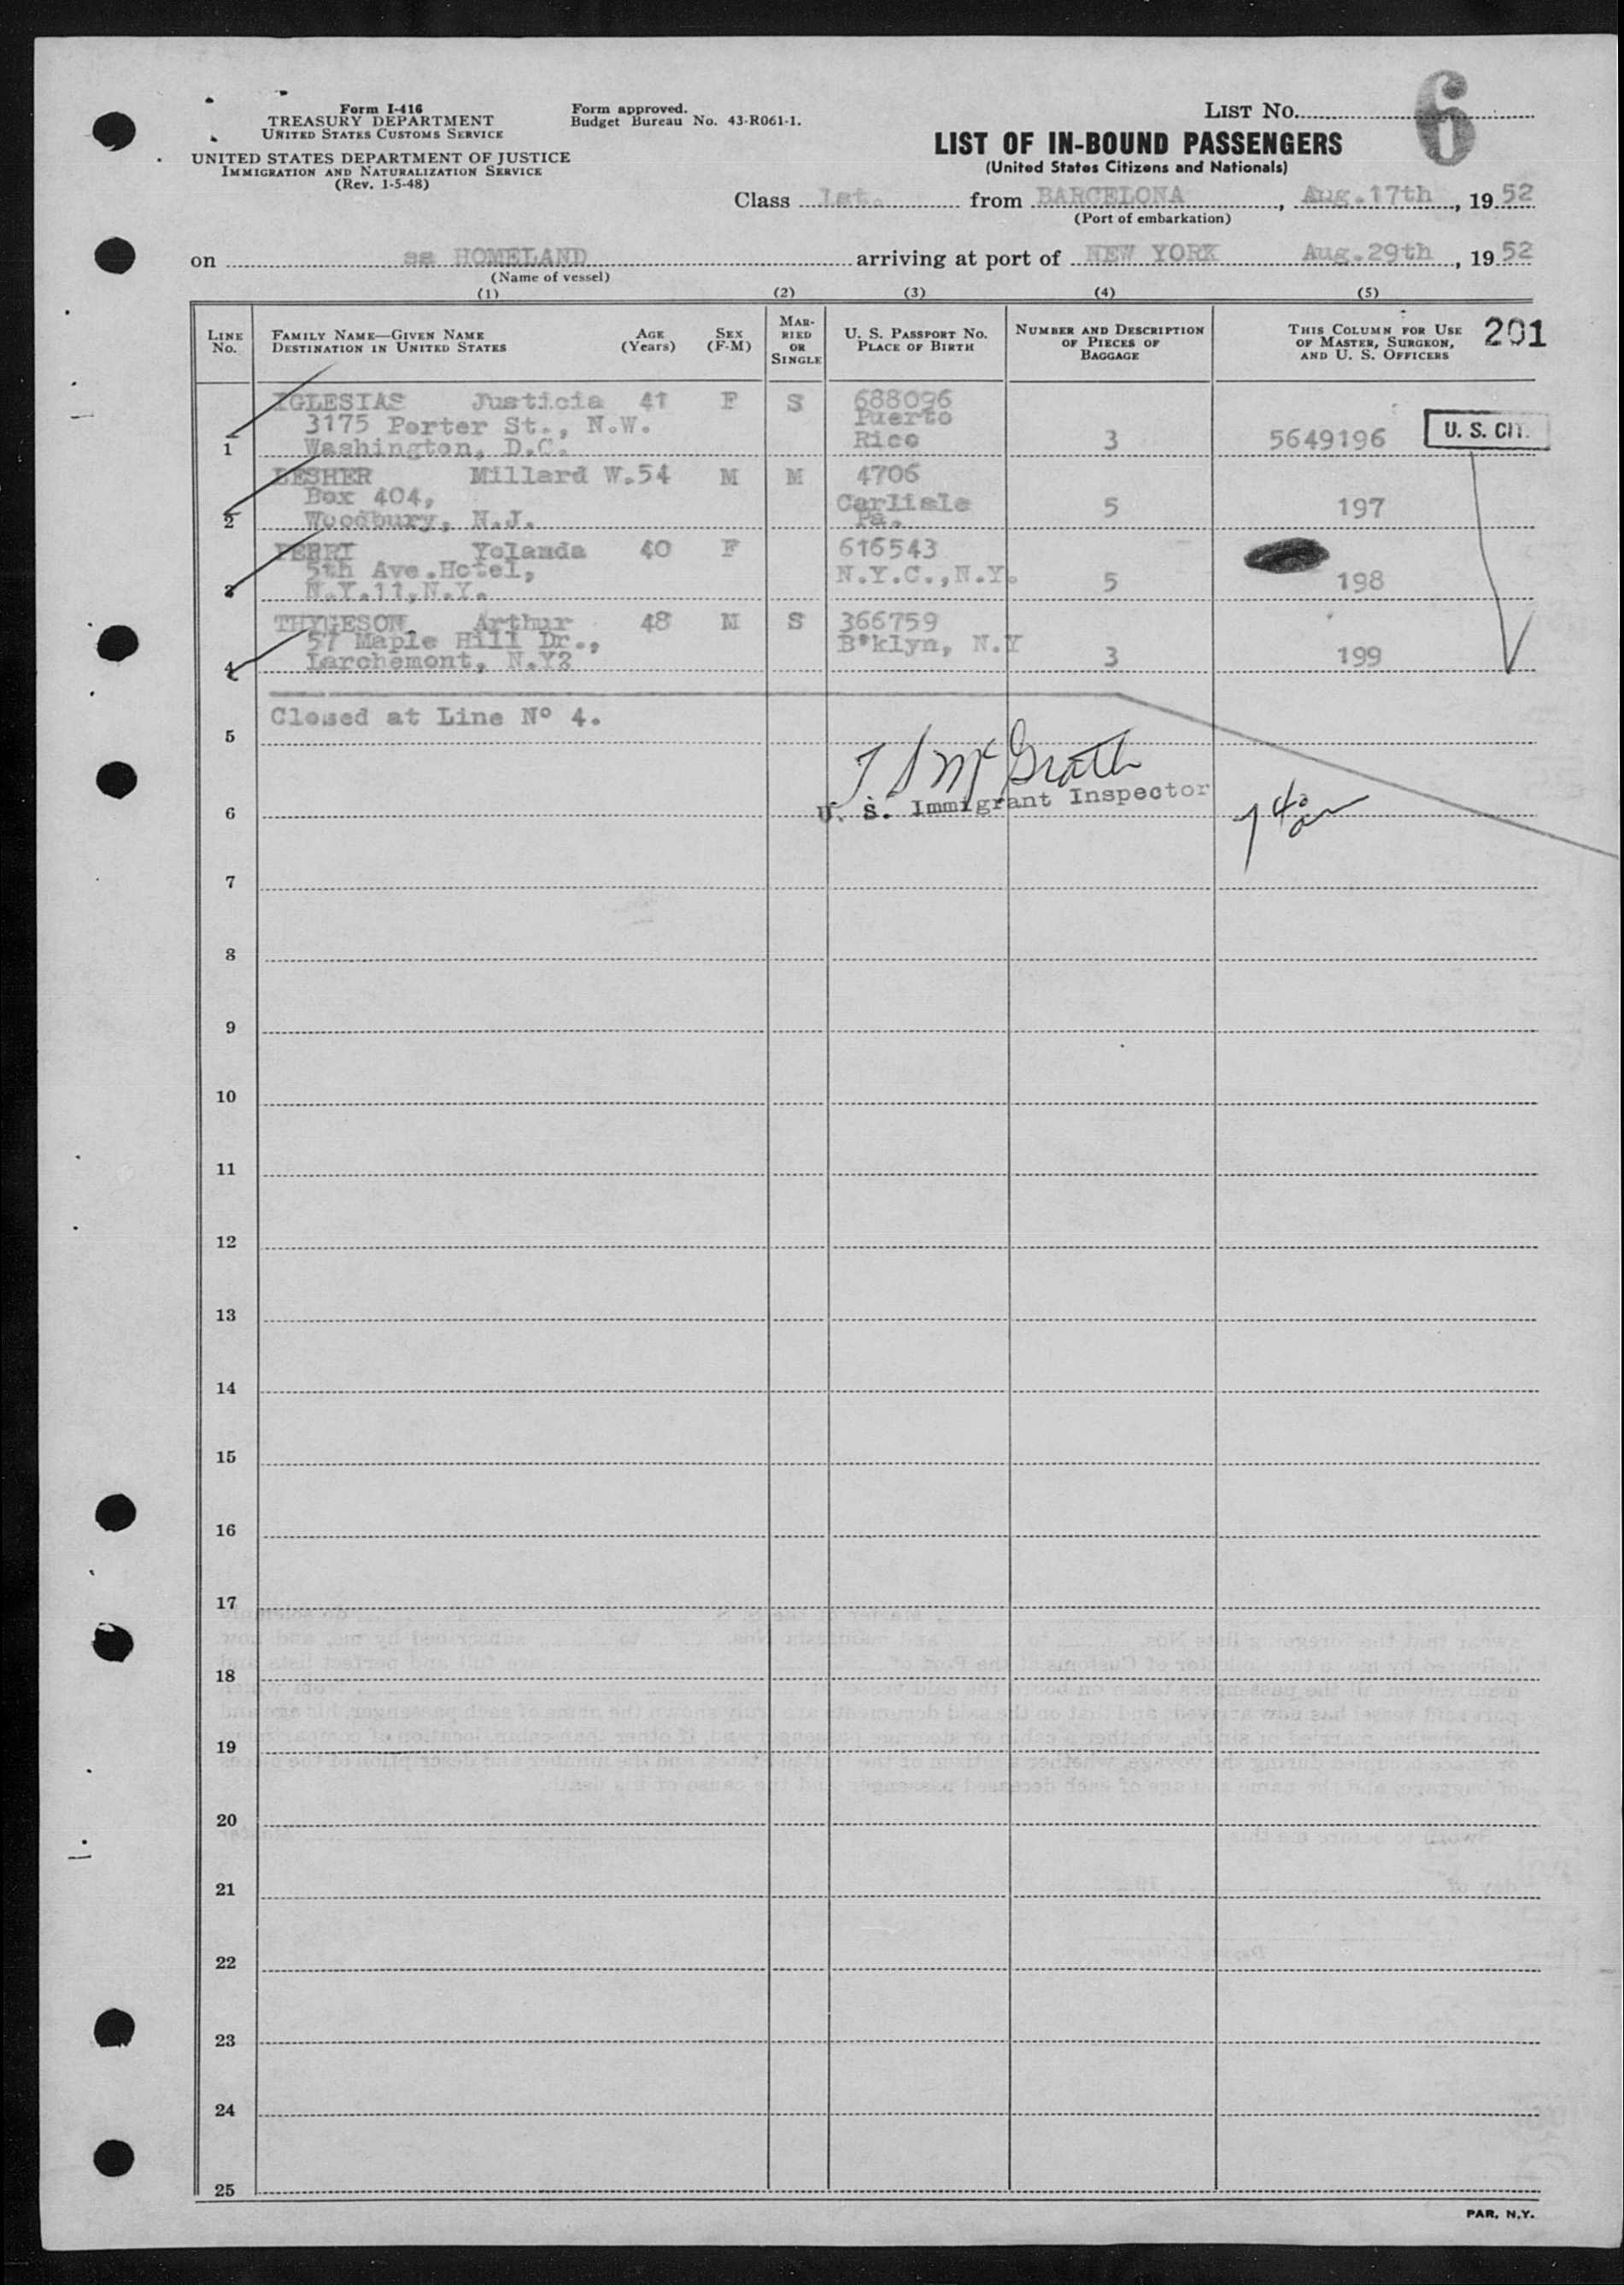 Form I-416
TREASURY DEPARTMENT
UNITED STATES CUSTOMS SERVICE
UNITED STATES DEPARTMENT OF JUSTICE
IMMIGRATION AND NATURALIZATION SERVICE
(Rev. 1-5-48)
Form approved.
Budget Bureau No. 43-R061-1.
LIST NO. 6
LIST OF IN-BOUND PASSENGERS
(United States Citizens and Nationals)
Class 1st. from BARCELONA, Aug.17th, 1952
(Port of embarkation)
on ss HOMELAND arriving at port of NEW YORK Aug.29th, 1952
(Name of vessel)
(1) (2) (3) (4) (5)
LINE NO.
FAMILY NAME—GIVEN NAME
DESTINATION IN UNITED STATES
AGE (Years)
SEX (F-M)
MARRIED OR SINGLE
U. S. PASSPORT NO.
PLACE OF BIRTH
NUMBER AND DESCRIPTION OF PIECES OF BAGGAGE
THIS COLUMN FOR USE OF MASTER, SURGEON, AND U. S. OFFICERS
201
IGLESIAS Justicia 41 F S 688096
3175 Porter St., N.W. Puerto
1 Washington, D.C. Rico 3 5649196 U. S. CIT.
LESHER Millard W. 54 M M 4706
Box 404, Carlisle 5 197
2 Woodbury, N.J. Pa.
FERRI Yolanda 40 F 616543
5th Ave.Hotel, N.Y.C.,N.Y. 5 198
3 N.Y.11,N.Y.
THYGESON, Arthur 48 M S 366759
57 Maple Hill Dr., B'klyn, N.Y
4 Larchemont, N.Y? 3 199
Closed at Line Nº 4.
5
T S McGrath
U. S. Immigrant Inspector
6
7
8
9
10
11
12
13
14
15
16
17
18
19
20
21
22
23
24
25
PAR, N.Y.